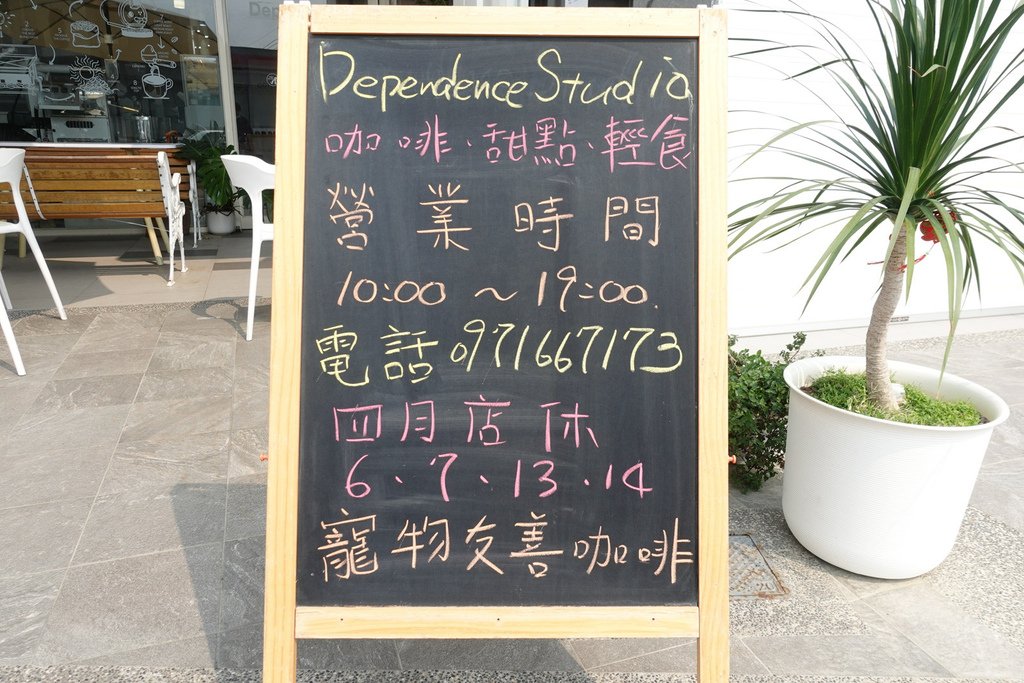 Dependence Studio
咖啡、甜點、輕食
營業時間
10:00 ~ 19:00.
電話0971667173
四月店休
6、7、13、14
寵物友善咖啡